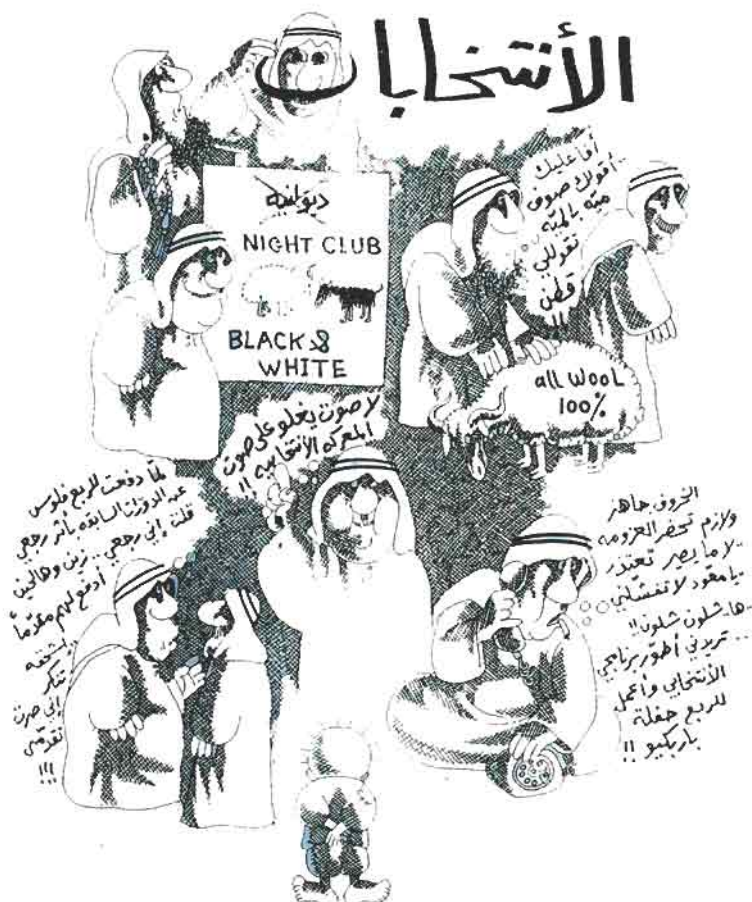 الأنتخابات
ديوانية
NIGHT CLUB
BLACK &
WHITE
أفا عليك
أقولك صوف
ميّه بالميّه
تقوللي
قطن
!!!
all WOOL
100%
لا صوت يعلو على صوت
المعركة الأنتخابيه !!
لمّا دفعت للربع فلوس
عن الدورة السابقه بأثر رجعي
قلت إني رجعي .. زين وهالحين
أدفع لهم مقدّماً
تنكر
إني صرت
تقدّمي
!!!
الخروف جاهز
ولازم تحضر العزومه
لا ما يصير تعتذر
يا معوّد لا تفشّلني
ها.. شلون شلون !!
.. تريدني أطوّر برنامجي
الأنتخابي وأعمل
للربع حفلة
باربكيو !!